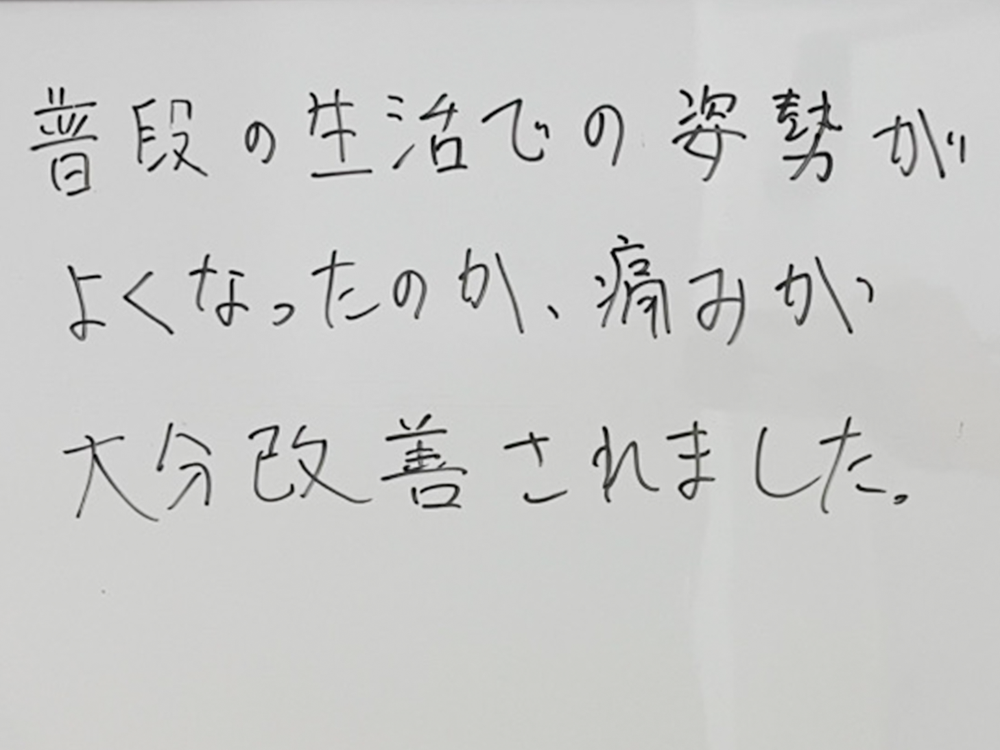 普段の生活での姿勢が
よくなったのか、痛みが
大分改善されました。